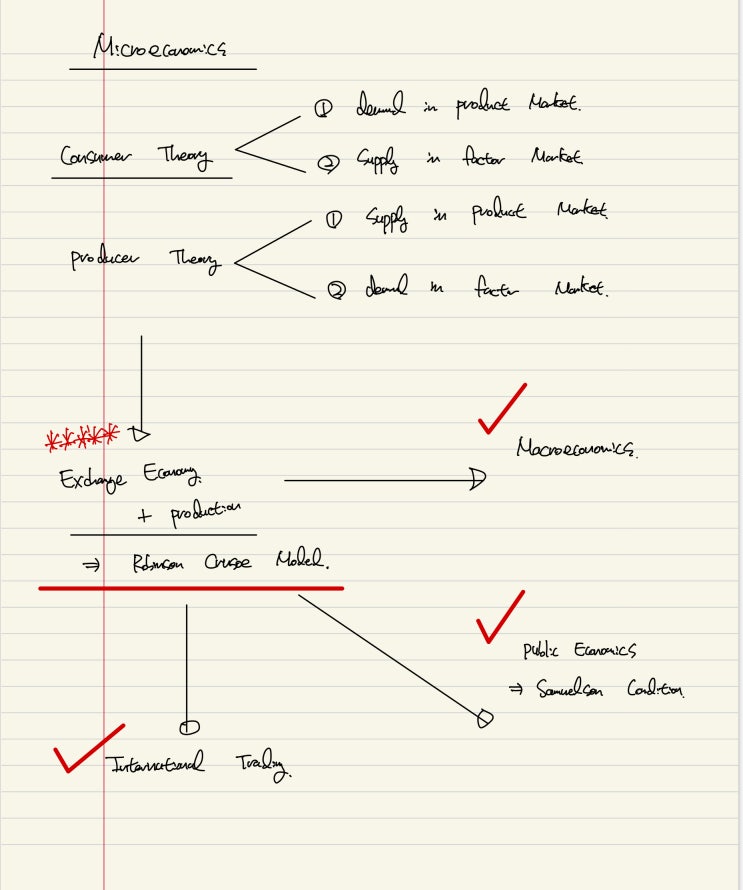 Microeconomics
① demand in product Market.
Consumer Theory
② Supply in factor Market
① Supply in product Market
Producer Theory
② demand in factor Market.
*****
Macroeconomics.
Exchange Economy.
+ production
⇒ Robinson Crusoe Model.
Public Economics
⇒ Samuelson Condition.
International Trading.